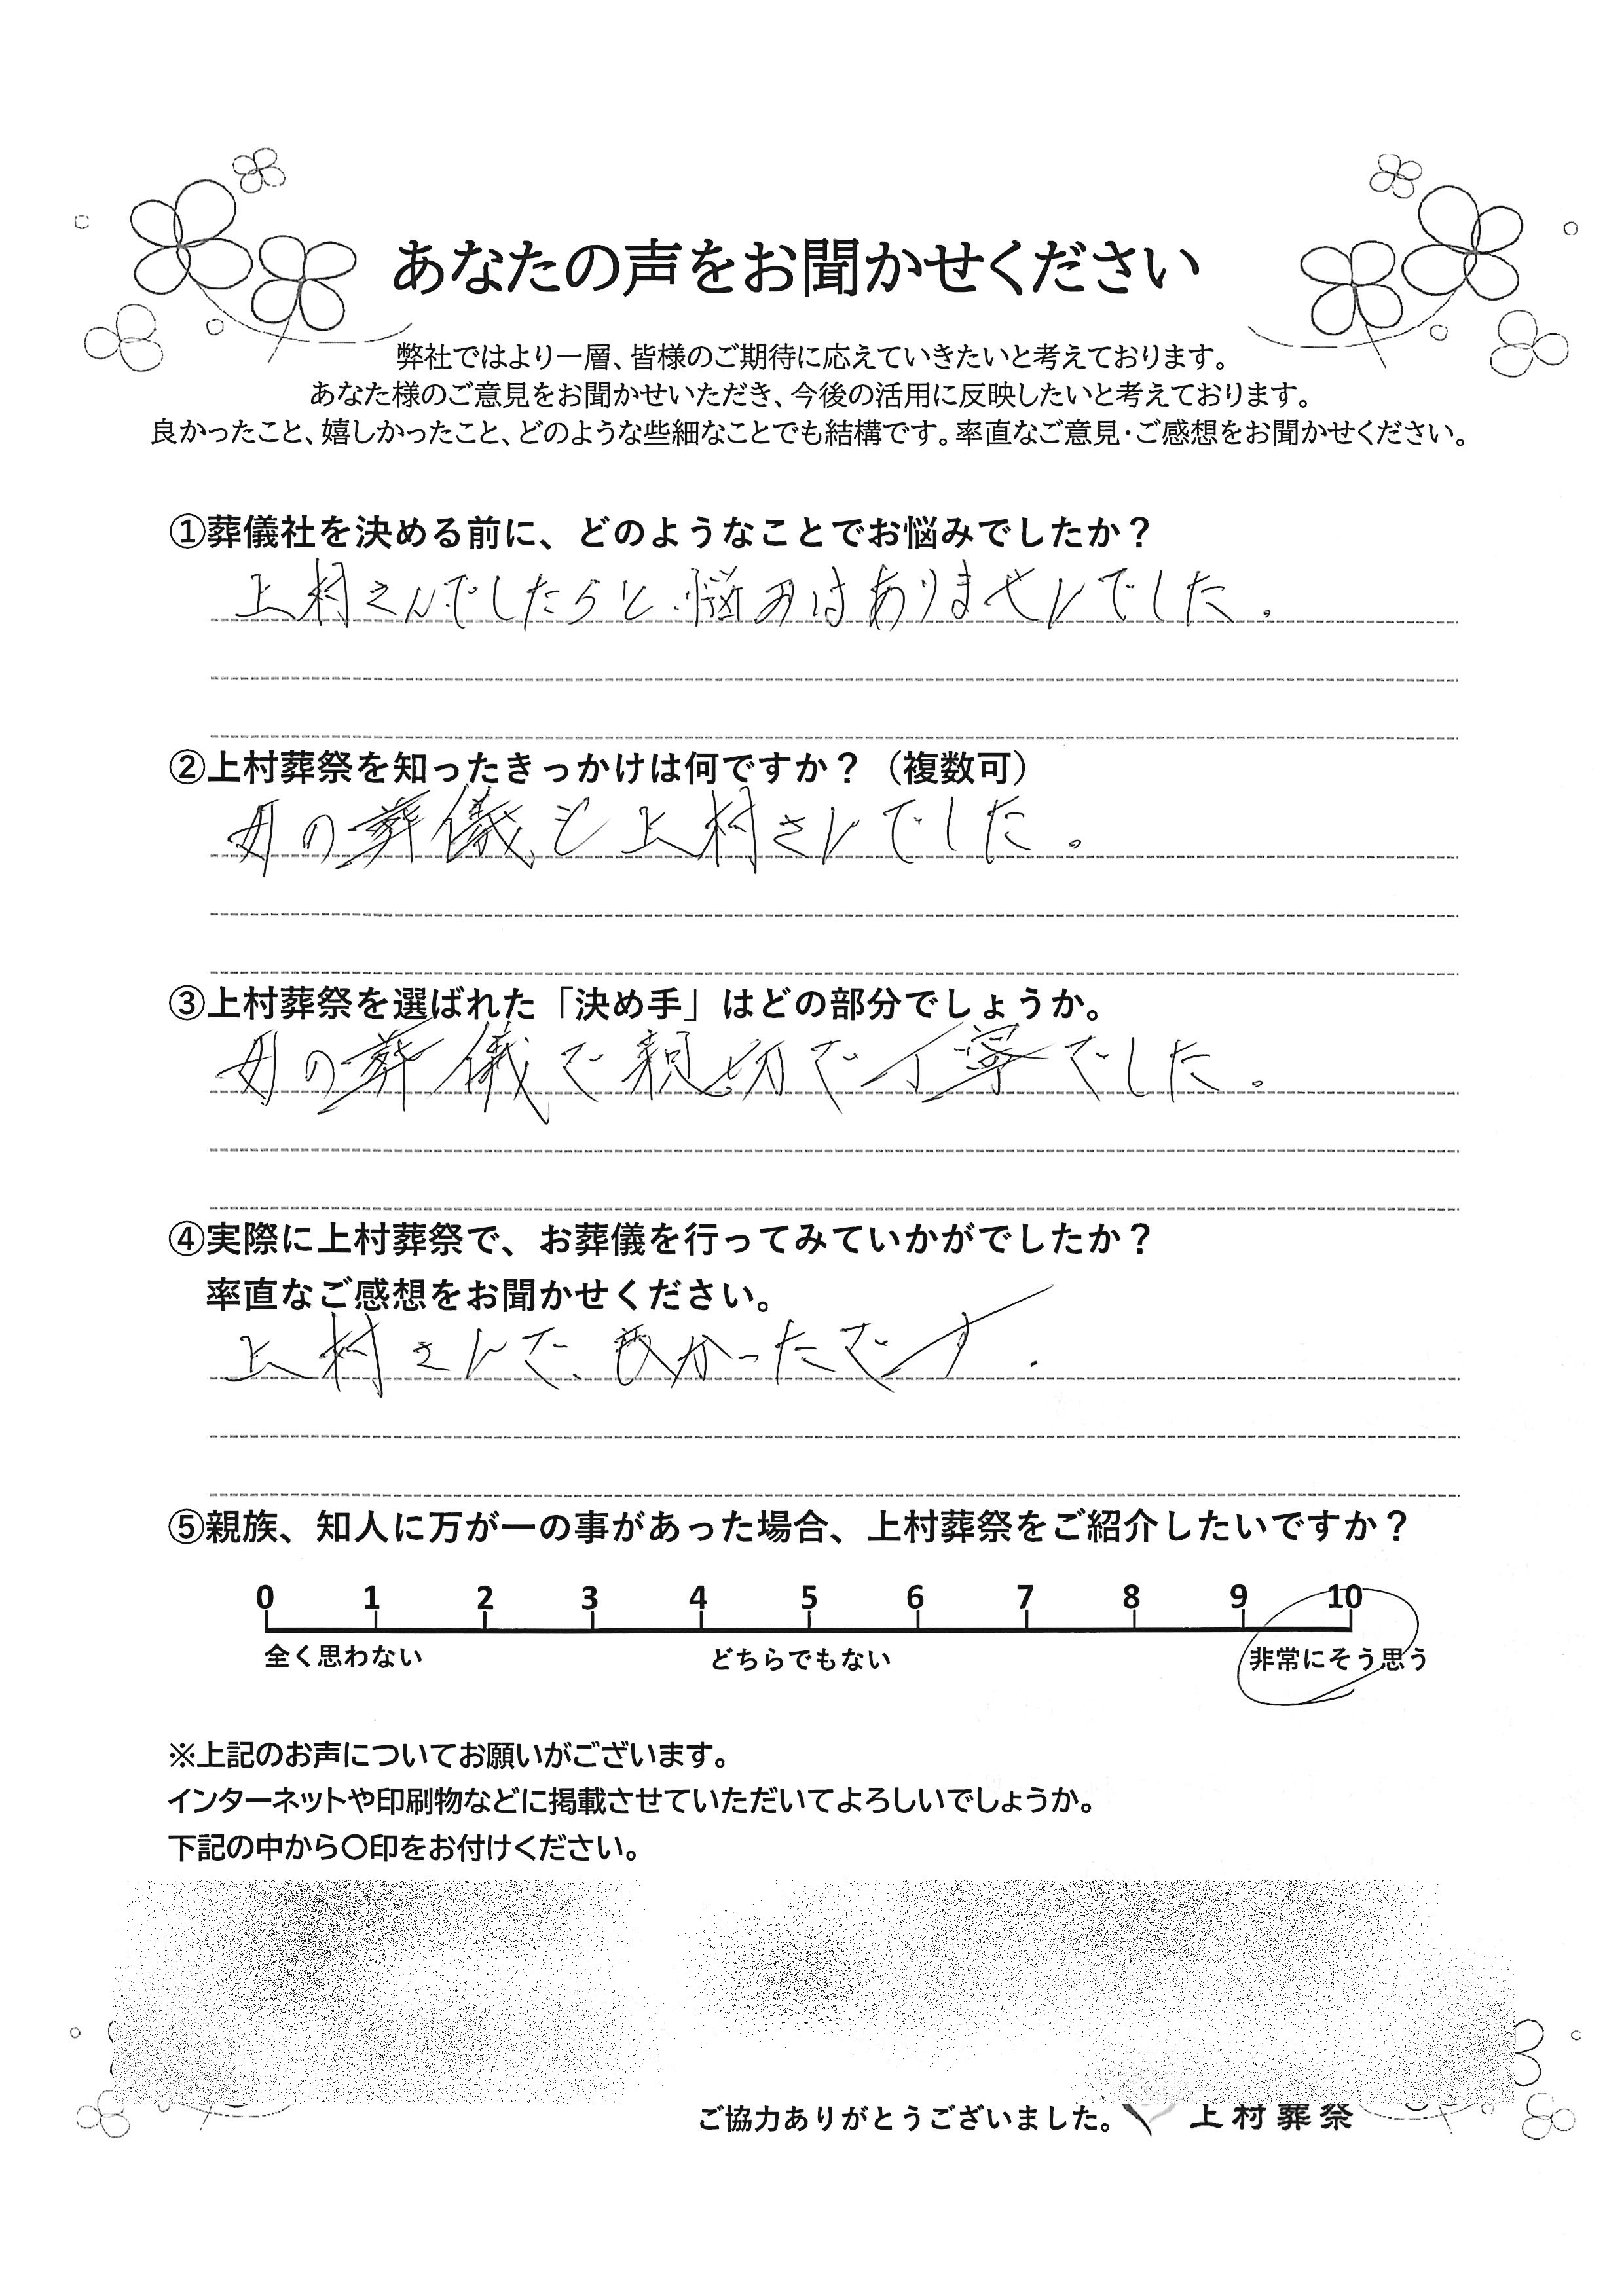 あなたの声をお聞かせください
弊社ではより一層、皆様のご期待に応えていきたいと考えております。
あなた様のご意見をお聞かせいただき、今後の活用に反映したいと考えております。
良かったこと、嬉しかったこと、どのような些細なことでも結構です。率直なご意見・ご感想をお聞かせください。
①葬儀社を決める前に、どのようなことでお悩みでしたか？
上村さんでしたらと、悩みはありませんでした。
②上村葬祭を知ったきっかけは何ですか？（複数可）
母の葬儀も上村さんでした。
③上村葬祭を選ばれた「決め手」はどの部分でしょうか。
母の葬儀で親切で丁寧でした。
④実際に上村葬祭で、お葬儀を行ってみていかがでしたか？
率直なご感想をお聞かせください。
上村さんで、良かったです.
⑤親族、知人に万が一の事があった場合、上村葬祭をご紹介したいですか？
0 1 2 3 4 5 6 7 8 9 10
全く思わない どちらでもない 非常にそう思う
※上記のお声についてお願いがございます。
インターネットや印刷物などに掲載させていただいてよろしいでしょうか。
下記の中から〇印をお付けください。
ご協力ありがとうございました。 上村葬祭